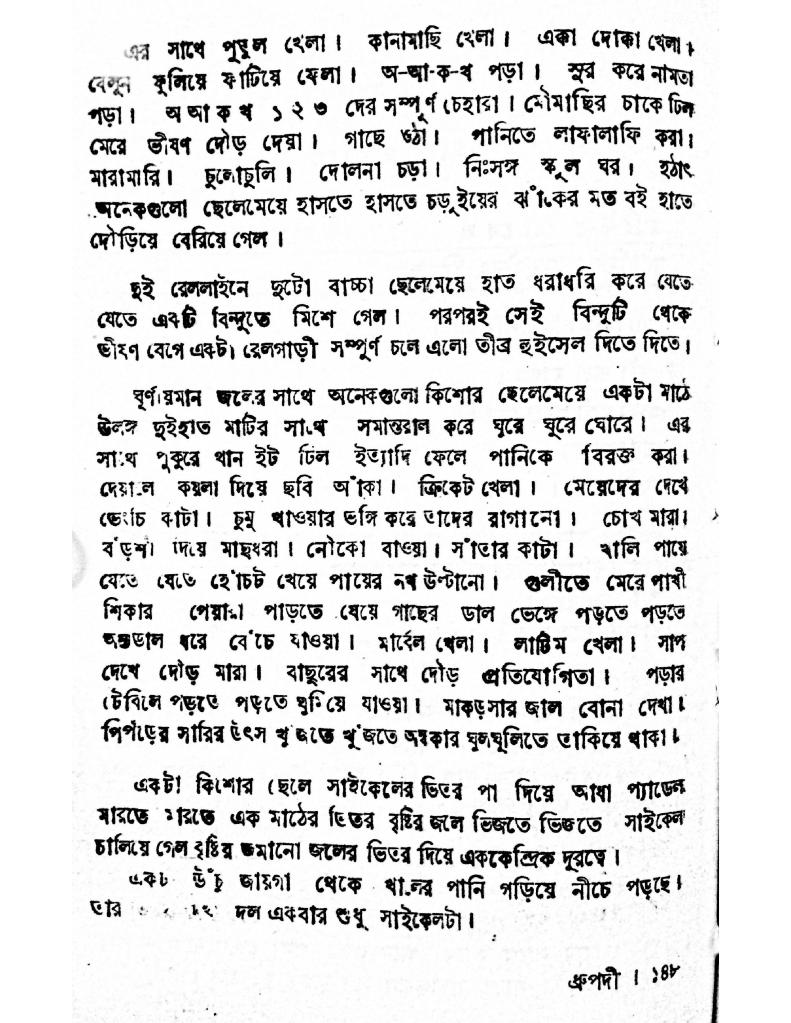 এর সাথে পুতুল খেলা। কানামাছি খেলা। একা দোকা খেলা।
বেলুন ফুলিয়ে ফাটিয়ে ফেলা। অ-আ-ক-খ পড়া। সুর করে নামতা
পড়া। অ আ ক খ ১ ২ ৩ দের সম্পূর্ণ চেহারা। মৌমাছির চাকে ঢিল
মেরে ভীষণ দৌড় দেয়া। গাছে ওঠা। পানিতে লাফালাফি করা।
মারামারি। চুলোচুলি। দোলনা চড়া। নিঃসঙ্গ স্কুল ঘর। হঠাৎ
অনেকগুলো ছেলেমেয়ে হাসতে হাসতে চড়ুইয়ের ঝাঁকের মত বই হাতে
দৌড়িয়ে বেরিয়ে গেল।
দুই রেললাইনে দুটো বাচ্চা ছেলেমেয়ে হাত ধরাধরি করে যেতে
যেতে একটি বিন্দুতে মিশে গেল। পরপরই সেই বিন্দুটি থেকে
ভীষণ বেগে একটা রেলগাড়ী সম্পূর্ণ চলে এলো তীব্র হুইসেল দিতে দিতে।
ঘূর্ণায়মান জলের সাথে অনেকগুলো কিশোর ছেলেমেয়ে একটা মাঠে
উলঙ্গ দুইহাত মাটির সাথে সমান্তরাল করে ঘুরে ঘুরে ঘোরে। এর
সাথে পুকুরে থান ইট ঢিল ইত্যাদি ফেলে পানিকে বিরক্ত করা।
দেয়ালে কয়লা দিয়ে ছবি আঁকা। ক্রিকেট খেলা। মেয়েদের দেখে
ভেংচি কাটা। চুমু খাওয়ার ভঙ্গি করে তাদের রাগানো। চোখ মারা।
বঁড়শী দিয়ে মাছধরা। নৌকো বাওয়া। সাঁতার কাটা। খালি পায়ে
যেতে যেতে হোঁচট খেয়ে পায়ের নখ উল্টানো। গুলীতে মেরে পাখী
শিকার পেয়ারা পাড়তে যেয়ে গাছের ডাল ভেঙ্গে পড়তে পড়তে
অন্তডাল ধরে বেঁচে যাওয়া। মার্বেল খেলা। লাটিম খেলা। সাপ
দেখে দৌড় মারা। বাছুরের সাথে দৌড় প্রতিযোগিতা। পড়ার
টেবিলে পড়তে পড়তে ঘুমিয়ে যাওয়া। মাকড়সার জাল বোনা দেখা।
পিপঁড়ের সারির উৎস খুঁজতে খুঁজতে অন্ধকার ঘুলঘুলিতে তাকিয়ে থাকা।
একটা কিশোর ছেলে সাইকেলের ভিতর পা দিয়ে আধা প্যাডেল
মারতে মারতে এক মাঠের ভিতর বৃষ্টির জলে ভিজতে ভিজতে সাইকেল
চালিয়ে গেল বৃষ্টির জমানো জলের ভিতর দিয়ে এককেন্দ্রিক দূরত্বে।
একটা উঁচু জায়গা থেকে খালের পানি গড়িয়ে নীচে পড়ছে।
তার দল একবার শুধু সাইকেলটা।
ধ্রুপদী। ১৪৮